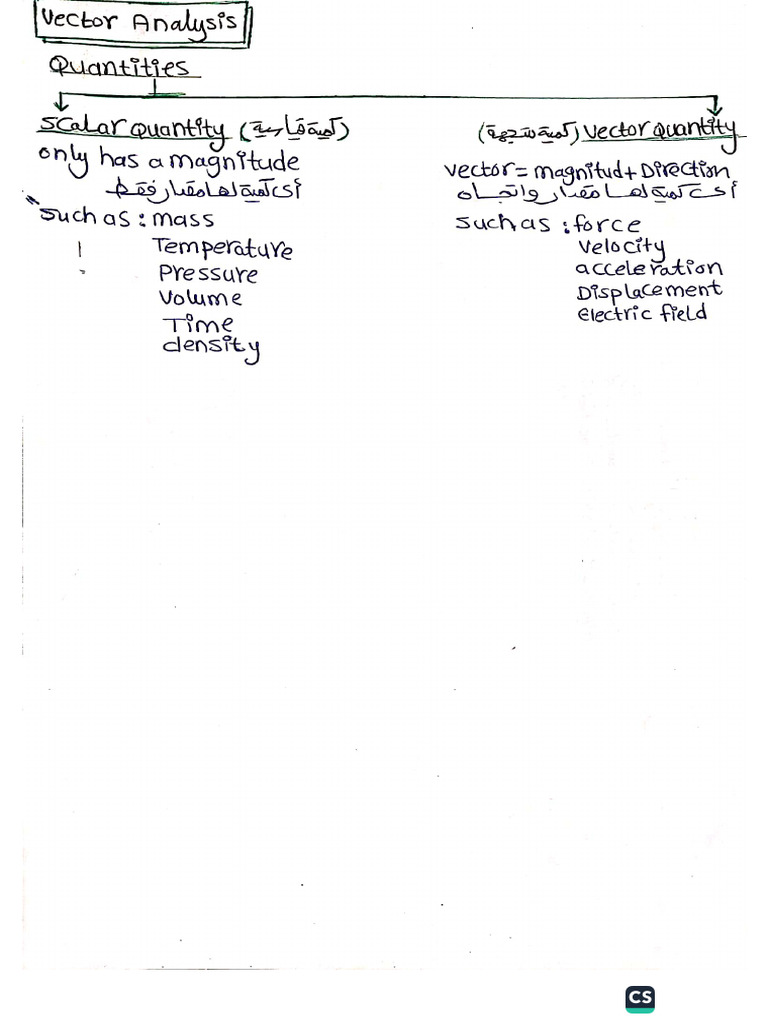 Vector Analysis
Quantities
Scalar quantity (كمية قياسية)
only has a magnitude
أى كمية لها مقدار فقط
Such as: mass
Temperature
Pressure
Volume
Time
density
(كمية متجهة) Vector quantity
vector = magnitud + Direction
أى كمية لها مقدار واتجاه
such as: force
velocity
acceleration
Displacement
Electric field
CS